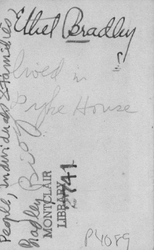 Ethel Bradley
lived in
Pype House
People, individuals & families
Bradley Biog
MONTCLAIR
LIBRARY
2741
P4089